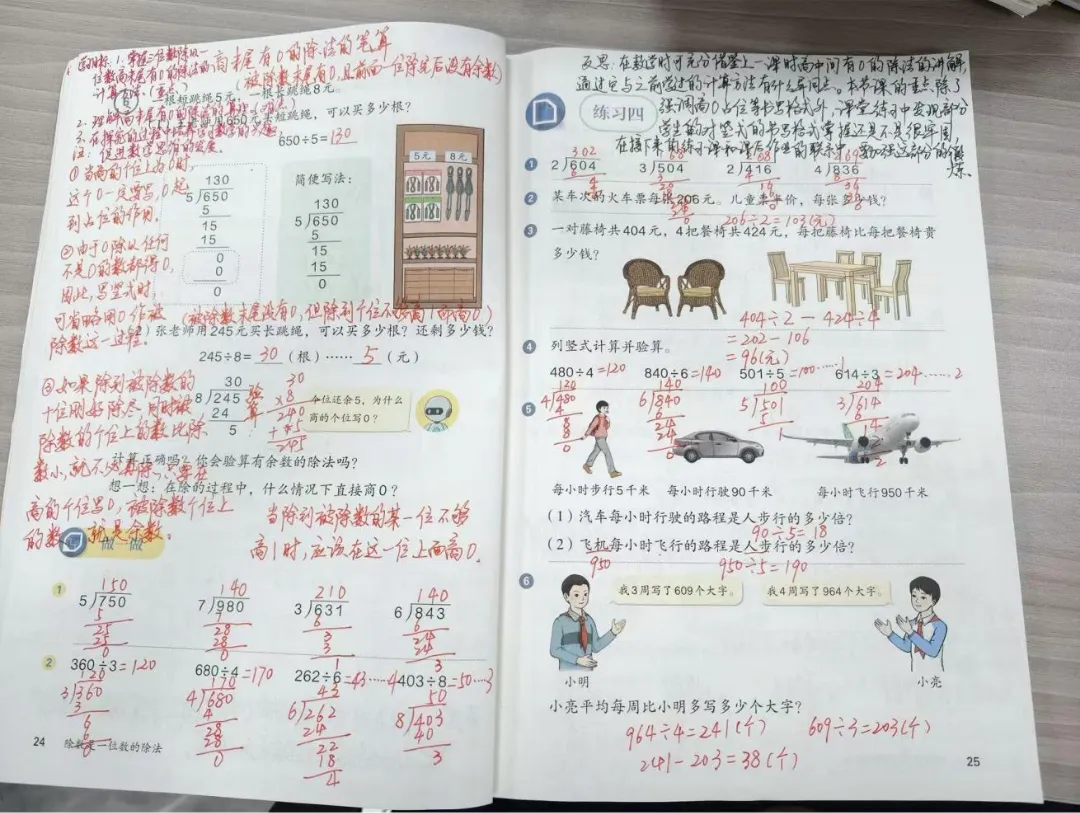 目标:1.掌握三位数除以一
位数商末尾有0的除法的
计算方法。(重点)
2.理解商末尾有0的除法的算理。(难点)
3.在探究的过程中培养学生数学的兴趣
促进数学思维的发展。
商末尾有0的除法的笔算
(被除数末尾有0,且前面一位除完后没有余数)
根短跳绳5元,一根长跳绳8元。
元买短跳绳,可以买多少根?
650÷5=130
5元 8元
注:
①当商的个位上为0时,
这个0一定要写,0起
到占位的作用。
②由于0除以任何
不是0的数都得0,
因此,写竖式时,
可省略用0作被
除数这一过程。
130
5 650
5
15
15
0
0
0
简便写法:
130
5 650
5
15
15
0
(被除数末尾没有0,但除到个位不够商1而商0)
(2)张老师用245元买长跳绳,可以买多少根?还剩多少钱?
245÷8=30(根)……5(元)
③如果除到被除数的
十位刚好除尽,同时被
除数的个位上的数比除
数小,就不必再除,只要在
商的个位写0,被除数个位上
的数就是余数。
30
8 245
24
5
验算
30
×8
240
+ 5
245
个位还余5,为什么
商的个位写0?
计算正确吗?你会验算有余数的除法吗?
想一想:在除的过程中,什么情况下直接商0?
当除到被除数的某一位不够
商1时,应该在这一位上面商0。
做一做
1
150
5 750
5
25
25
0
140
7 980
7
28
28
0
210
3 631
6
3
3
1
140
6 843
6
24
24
3
2
360÷3=120
680÷4=170
262÷6=43……4
403÷8=50……3
120
3 360
3
6
6
0
170
4 680
4
28
28
0
43
6 262
24
22
18
4
50
8 403
40
3
24 除数是一位数的除法
反思:在教学时可充分借鉴上一课时商中间有0的除法的讲解,
通过它与之前学过的计算方法有什么异同点。本节课的重点除了
强调商0占位等书写格式外,课堂练习中发现部分
学生的对竖式的书写格式掌握还是不是很牢固,
在接下来的练习课和课后作业的联系中,要加强这部分的锻
炼。
练习四
1
302
2 604
168
3 504
208
2 416
209
4 836
2
某车次的火车票每张206元。儿童票半价,每张多少钱?
206÷2=103(元)
3
一对藤椅共404元,4把餐椅共424元,每把藤椅比每把餐椅贵
多少钱?
404÷2-424÷4
=202-106
=96(元)
4
列竖式计算并验算。
480÷4=120
840÷6=140
501÷5=100……1
614÷3=204……2
120
4 480
4
8
8
0
140
6 840
6
24
24
0
100
5 501
5
1
204
3 614
6
14
12
2
5
每小时步行5千米
每小时行驶90千米
每小时飞行950千米
(1)汽车每小时行驶的路程是人步行的多少倍?
90÷5=18
(2)飞机每小时飞行的路程是人步行的多少倍?
950
950÷5=190
6
我3周写了609个大字。
我4周写了964个大字。
小明
小亮
小亮平均每周比小明多写多少个大字?
964÷4=241(个)
609÷3=203(个)
241-203=38(个)
25